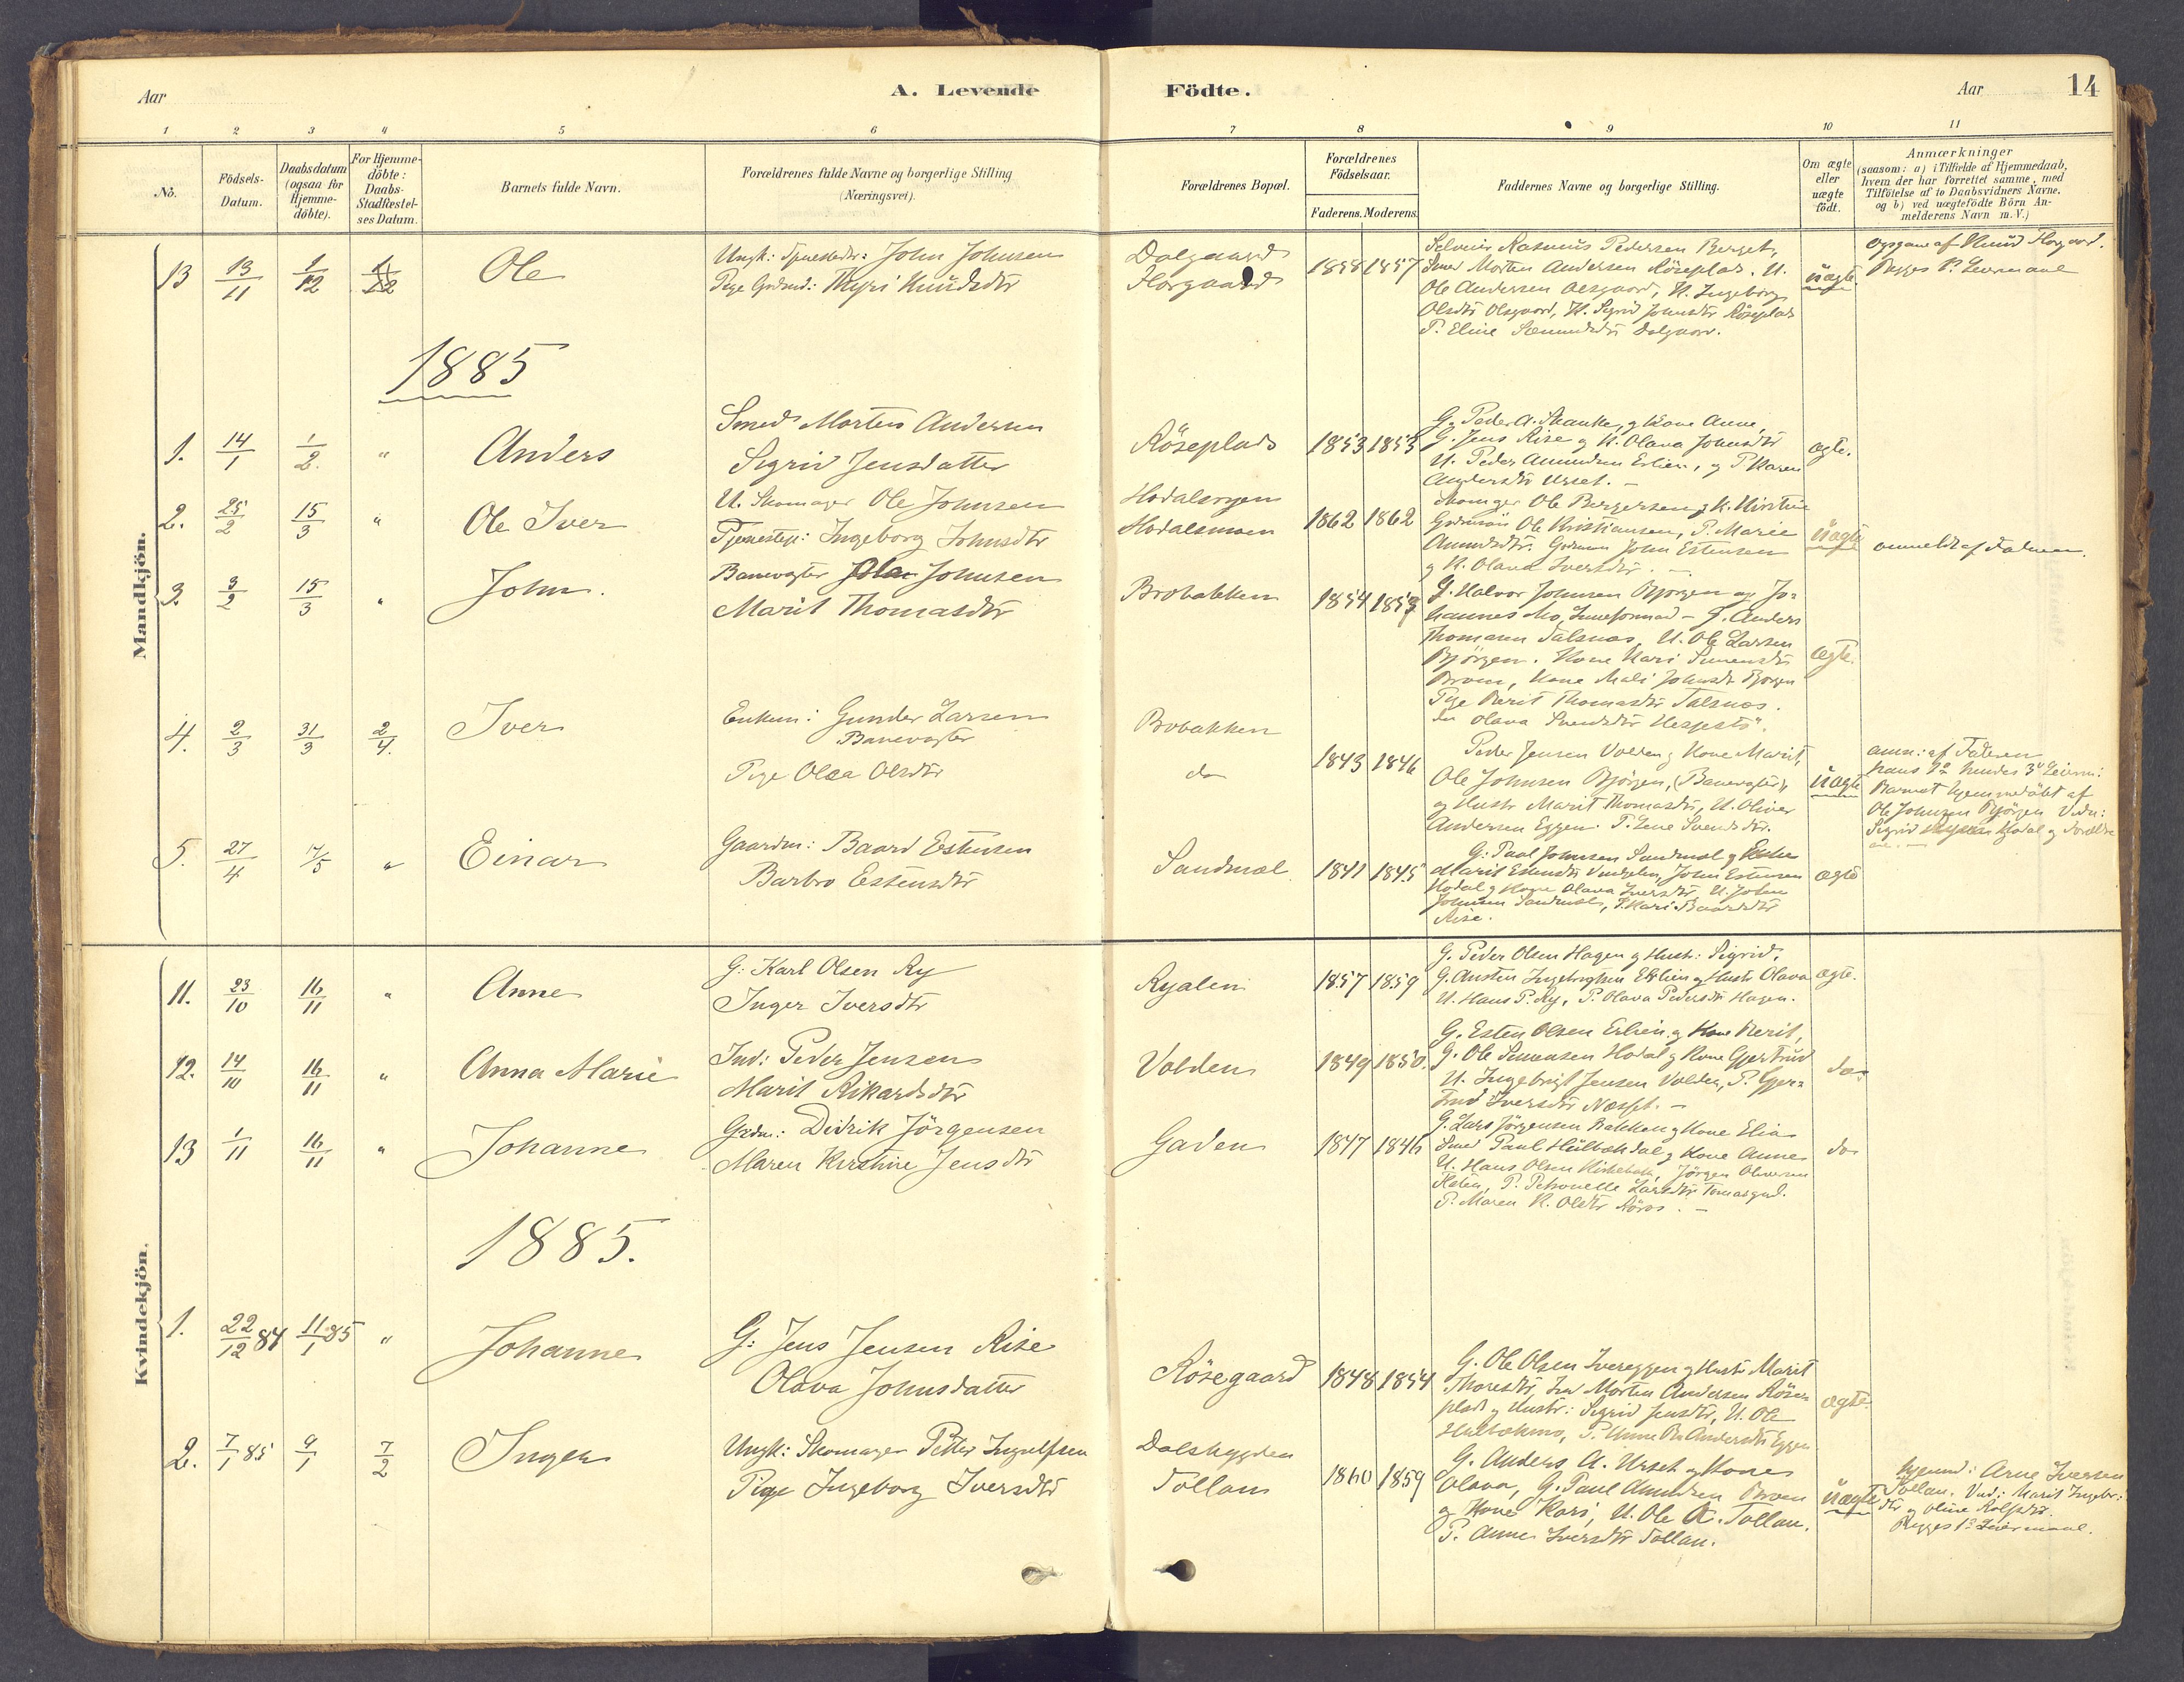 Aar
A. Levende Födte.
Aar
14
1 2 3 4 5 6 7 8 9 10 11
No.
Födsels-Datum.
Daabsdatum (ogsaa for Hjemme-döbte).
For Hjemme-döbte: Daabs-Stadfæstel-ses Datum.
Barnets fulde Navn.
Forældrenes fulde Navne og borgerlige Stilling (Næringsvei).
Forældrenes Bopæl.
Forældrenes Födselsaar.
Faderens. Moderens.
Faddernes Navne og borgerlige Stilling.
Om ægte eller uægte födt.
Anmærkninger
(saasom: a) i Tilfælde af Hjemmedaab,
hvem der har forrettet samme, med
Tilföielse af to Daabsvidners Navne,
og b) ved uægtefödte Börn An-
melderens Navn m.V.)
Mandkjön.
13 13/11 1/12 Ole
Ungk: John Johnsen
Pige Thyri Knudsdtr
Dalgaard
Horgaard
1858 1857
Rasmus Pedersen Berget,
Smed Morten Andersen Röseplads. U.
Ole Andersen Olsgaard, K. Ingeborg
Olsdtr Olsgaard, K. Sigrid Jensdtr Röseplads
P. Eline Dalgaard.
uægte
Opgave af Knud Horgaard.
Begges 1ste Leiermaal
1885
1. 14/1 1/2. " Anders
Smed Morten Andersen
Sigrid Jensdatter
Röseplads 1853 1853
G. Peder A. Skanke, og Kone Anne,
G. Jens Rise og K. Olava Johnsdtr
U. Peder Amundsen Erlien, og P. Karen
Andersdtr Urset. -
ægte.
2. 25/2 15/3 " Ole Iver
U. Skomager Ole Johnsen
Tjenestep: Ingeborg Johnsdtr
Hodalsmoen
1862 1862
Skomager Ole Bergersen og K. Kirstine
Ole Kristiansen, P. Marie
Amundsdtr. John Estensen
og K. Olava Iversdtr. -
uægte
anmeldt af Faderen.
3. 3/2 15/3 " John.
Banevogter Ole Johnsen
Marit Thomasdtr
Brobakken 1854 1859
G. Halvor Johnsen Bjørgen og Jo-
hannes Mo, - G. Anders
Thomasen Talsnæs, U. Ole Larsen
Bjørgen. Kone Kari Simensdtr
Broen, Kone Mali Johnsdtr Bjørgen
Pige Berit Thomasdtr Talsnæs.
Olava Svendsdtr
ægte.
4. 2/3 31/3 2/4. Iver
Enkem: Gunder Larsen
Banevogter
Pige Olea Olsdtr
Brobakken
do
1843 1846
Peder Jensen Volden og Kone Marit,
Ole Johnsen Bjørgen, (Banevogter),
og Hustr Marit Thomasdtr, U. Oliver
Andersen Eggen. P. Lene Svendsdtr.
uægte
anm: af Faderen
hans 1ste hendes 3die Leierm:
Barnet hjemmedöbt af
Ole Johnsen Bjørgen Vidn:
Sigrid Hodal og Forældre
5. 27/4 17/5 " Einar
Gaardm: Baard Estensen
Barbro Estensdtr
Sandmæl 1841 1845
G: Paal Johnsen Sandmæl og
Marit Estensdtr Vingelen, John Estensen
Hodal og Kone Olava Iversdtr, U. John
Johnsen Sandmæl, P. Kari Baardsdtr
Rise.
ægte
Kvindekjön.
11. 23/10 16/11 " Anne
G: Karl Olsen Ry
Inger Iversdtr
Ryalen 1857 1859
G. Peder Olsen Hagen og Hustr: Sigrid,
G. Austen Ingebrigtsen Erlien og Hustr Olava
U. Hans P. Ry, P. Olava Pedersdtr Hagen.
ægte.
12. 14/10 16/11 " Anna Marie
Ind: Peder Jensen
Marit Rikardsdtr
Volden 1849 1850.
G. Esten Olsen Erlien og Kone Berit,
G. Ole Simensen Hodal og Kone Gjertrud
U. Ingebrigt Jensen Volden, P. Gjer-
trud Iversdtr Næsset. -
do
13 1/11 16/11 " Johanne
Grdm: Didrik Jörgensen
Maren Kirstine Jensdtr
Gaden 1847 1846
G. Lars Jörgensen Bakken og Kone Elia
Smed Paul Hulbækdal og Kone Anne
U. Hans Olsen Kirkebak, Jörgen Oliversen
Floten, P. Petronelle Larsdtr Tomasgrd.
P. Maren K. Olsdtr Röros. -
do
1885.
1. 22/12 84 11/1 85 " Johanne
G: Jens Jensen Rise
Olava Johnsdatter
Rösegaard 1848 1854
G. Ole Olsen Svereggen og Hustr Marit
Thoresdtr, Ind. Morten Andersen Röse-
plads og Hustr: Sigrid Jensdtr, U. Ole
Hulbækmo, P. Andersdtr Eggen
ægte.
2. 7/1 85 9/1 7/2 Inger
Ungk: Skomager Petter Ingulfsen
Pige Ingeborg Iversdtr
Dalsbygden
Tollan
1860 1859
G. Anders A. Urset og Kone
Olava, G. Paul Amundsen Broen
og Kone Kari, U. Ole A. Tollan.
P. Anne Iversdtr Tollan.
uægte
hjemd: Arne Iversen
Tollan. Vid: Marit Ingebr:
dtr og Oline Rolfsdtr.
Begges 1ste Leiermaal.